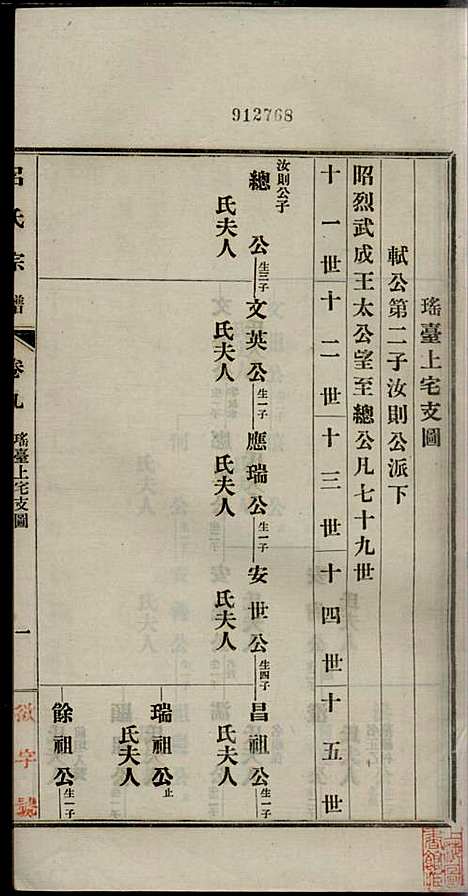 912768
瑤臺上宅支圖
軾公第二子汝則公派下
昭烈武成王太公望至總公凡七十九世
十一世 十二世 十三世 十四世 十五世
汝則公子
總公 生二子 文英公 生一子 應瑞公 生一子 安世公 生四子 昌祖公 生一子
氏夫人 氏夫人 氏夫人 氏夫人 氏夫人
瑞祖公 止
氏夫人
餘祖公 生一子
氏夫人
呂氏宗譜 卷九 瑤臺上宅支圖 一
徵字號